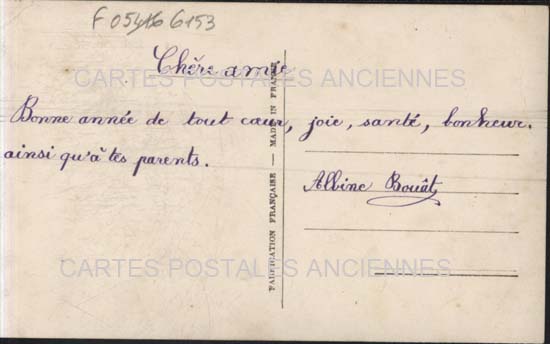 F 05416 6153
Chère amie
CARTES POSTALES ANCIENNES
Bonne année de tout cœur, joie, santé, bonheur.
ainsi qu'à tes parents.
Albine Bouât
FABRICATION FRANÇAISE — MADE IN FRANCE
CARTES POSTALES ANCIENNES